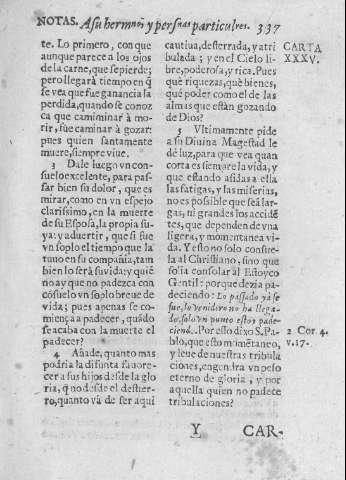 NOTAS. A su hermano y personas particulares. 337
te. Lo primero, con que
aunque parece a los ojos
de la carne, que se pierde;
pero llegará tiempo en q̃
se vea que fue ganancia la
perdida, quando se conoz
ca que camiminar à mo-
rir, fue caminar à gozar:
pues quien santamente
muere, siempre vive.
3 Dale luego vn con-
suelo excelente, para pas-
sar bien su dolor, que es
mirar, como en vn espejo
clarissimo, en la muerte
de su Esposa, la propia su-
ya: y advertir, que si fue
vn soplo el tiempo que la
tuuo en su compañia, tam
bien lo serà su vida: y quiē
no ay que no padezca con
cōsuelo vn soplo breue de
vida; pues apenas se co-
miença a padecer, quādo
se acaba con la muerte el
padecer?
4 Añade, quanto mas
podria la difunta fauore-
cer a sus hijos desde la glo
ria, q̃ no desde el destier-
ro, quanto và de ser aqui
cautiua, desterrada, y atri
bulada; y en el Cielo li-
bre, poderosa, y rica. Pues
què riquezas, què bienes,
què poder como el de las
almas que estàn gozando
de Dios?
5 Vltimamente pide
a su Diuina Magestad le
dè luz, para que vea quan
corta es siempre la vida, y
que estando asidas a ella
las fatigas, y las miserias,
no es possible que sea lar-
gas, ni grandes los accidē
tes, que dependen de vna
ligera, y momentanea vi
da. Y esto no solo consue-
la al Christiano, sino que
solia consolar al Estoyco
Gentil: porque dezia pa-
deciendo: Lo passado yà se
fue, lo venidero no ha llega-
do, solo vn punto estoy pade-
ciendo. Por esto dixo S. Pa-
blo, que esto momētaneo,
y leue de nuestras tribula
ciones, engendra vn peso
eterno de gloria, y por
aquella quien no padece
tribulaciones?
CARTA
XXXV.
2 Cor. 4.
v. 17.
Y CAR-